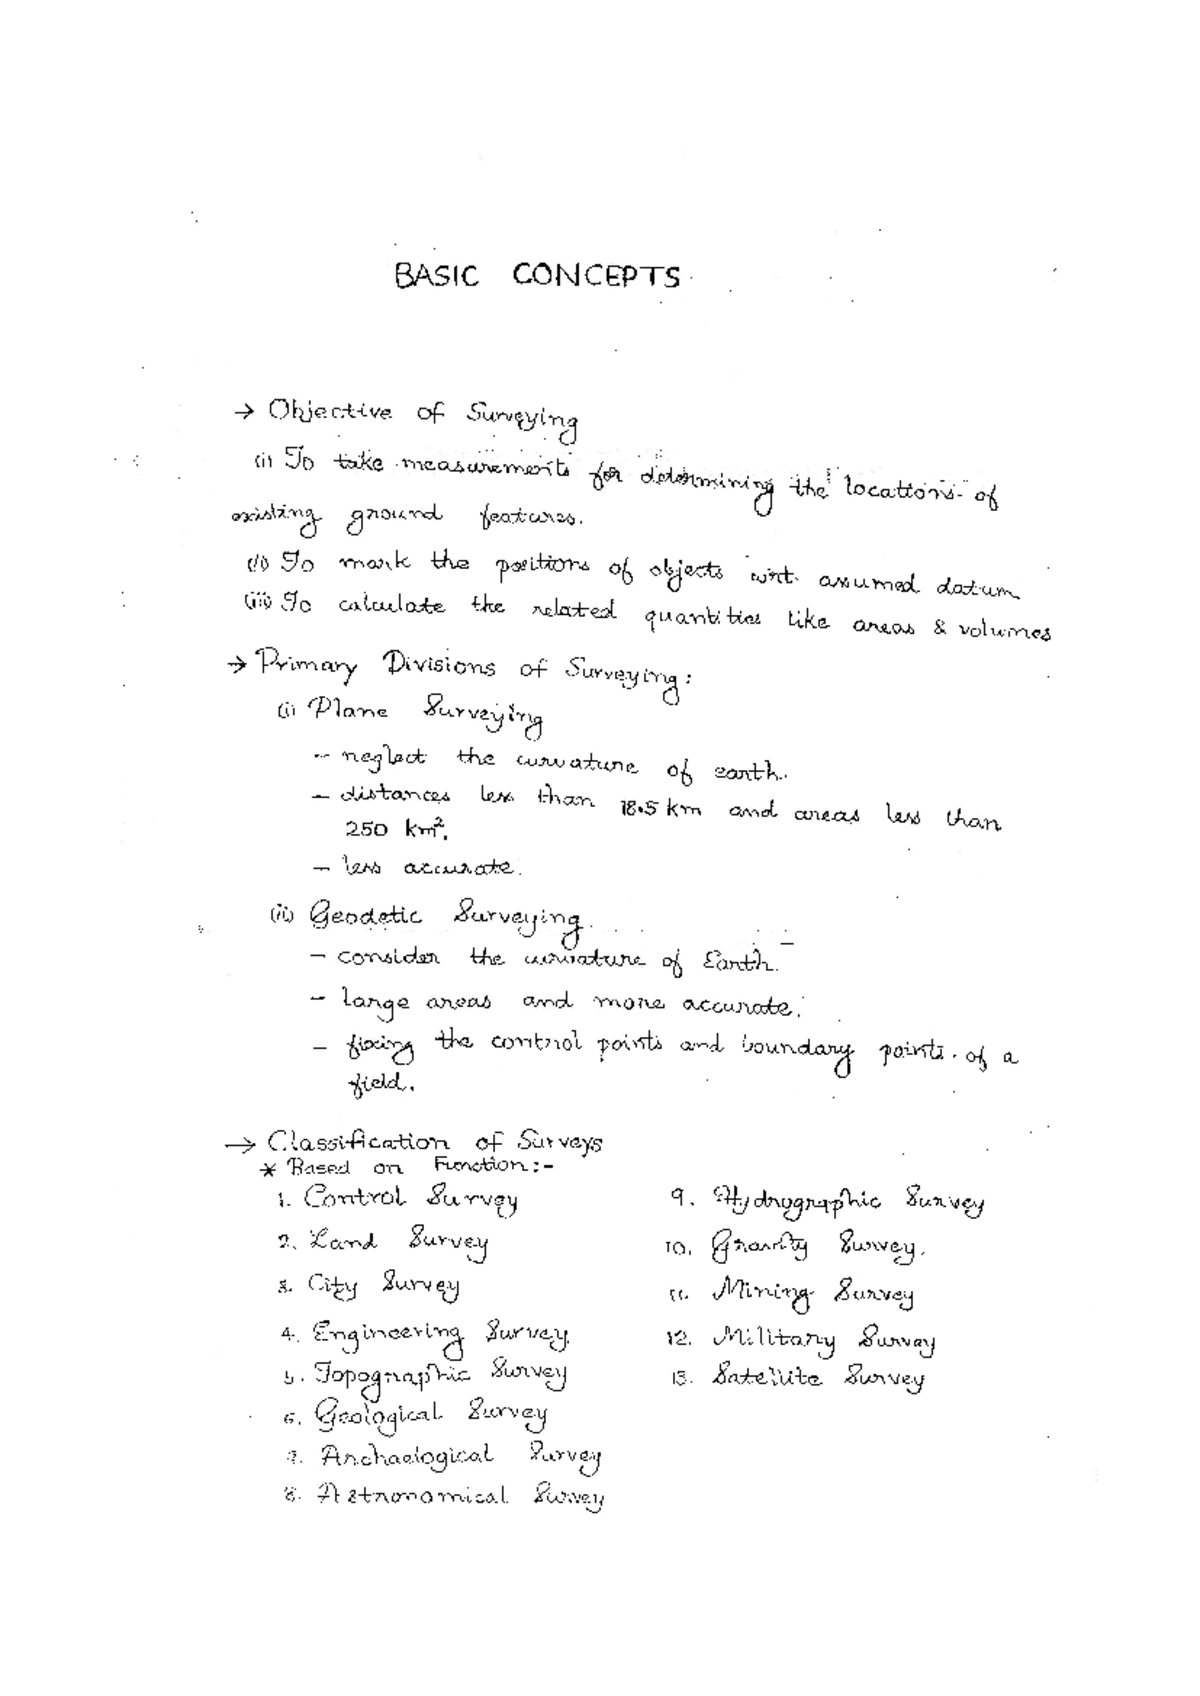 BASIC CONCEPTS
→ Objective of Surveying
(i) To take measurements for determining the locations of
existing ground features.
(ii) To mark the positions of objects wrt. assumed datum
(iii) To calculate the related quantities like areas & volumes
→ Primary Divisions of Surveying:
(i) Plane Surveying
- neglect the curvature of earth.
- distances less than 18.5 km and areas less than
250 km².
- less accurate.
(ii) Geodetic Surveying.
- consider the curvature of Earth.
- large areas and more accurate.
- fixing the control points and boundary points of a
field.
→ Classification of Surveys
* Based on Function:-
1. Control Survey
2. Land Survey
3. City Survey
4. Engineering Survey
5. Topographic Survey
6. Geological Survey
7. Archaelogical Survey
8. Astronomical Survey
9. Hydrographic Survey
10. Gravity Survey.
11. Mining Survey
12. Military Survey
13. Satellite Survey